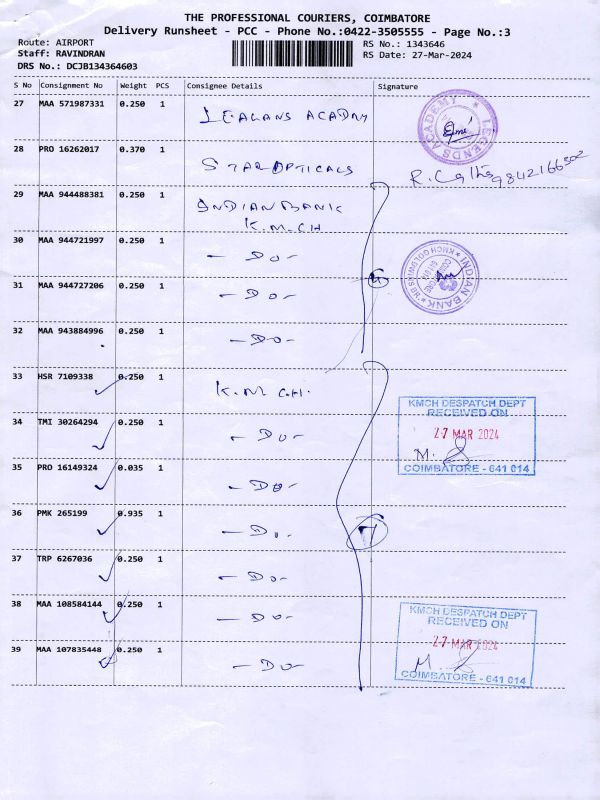 THE PROFESSIONAL COURIERS, COIMBATORE
Delivery Runsheet - PCC - Phone No.:0422-3505555 - Page No.:3
Route: AIRPORT
Staff: RAVINDRAN
DRS No.: DCJB134364603
RS No.: 1343646
RS Date: 27-Mar-2024
S No Consignment No Weight PCS Consignee Details Signature
27 MAA 571987331 0.250 1 LEAGANS ACADMY
LEGENDS ACADEMY
28 PRO 16262017 0.370 1 STAR OPTICALS
9842166502
29 MAA 944488381 0.250 1 INDIAN BANK
K.M.C.H
30 MAA 944721997 0.250 1 - Do -
31 MAA 944727206 0.250 1 - Do -
INDIAN BANK
32 MAA 943884996 0.250 1 - Do -
33 HSR 7109338 0.250 1 K.M.C.H.
KMCH DESPATCH DEPT
RECEIVED ON
27 MAR 2024
COIMBATORE - 641 014
34 TMI 30264294 0.250 1 - Do -
35 PRO 16149324 0.035 1 - Do -
36 PMK 265199 0.935 1 - Do -
7
37 TRP 6267036 0.250 1 - Do -
38 MAA 108584144 0.250 1 - Do -
KMCH DESPATCH DEPT
RECEIVED ON
27 MAR 2024
COIMBATORE - 641 014
39 MAA 107835448 0.250 1 - Do -